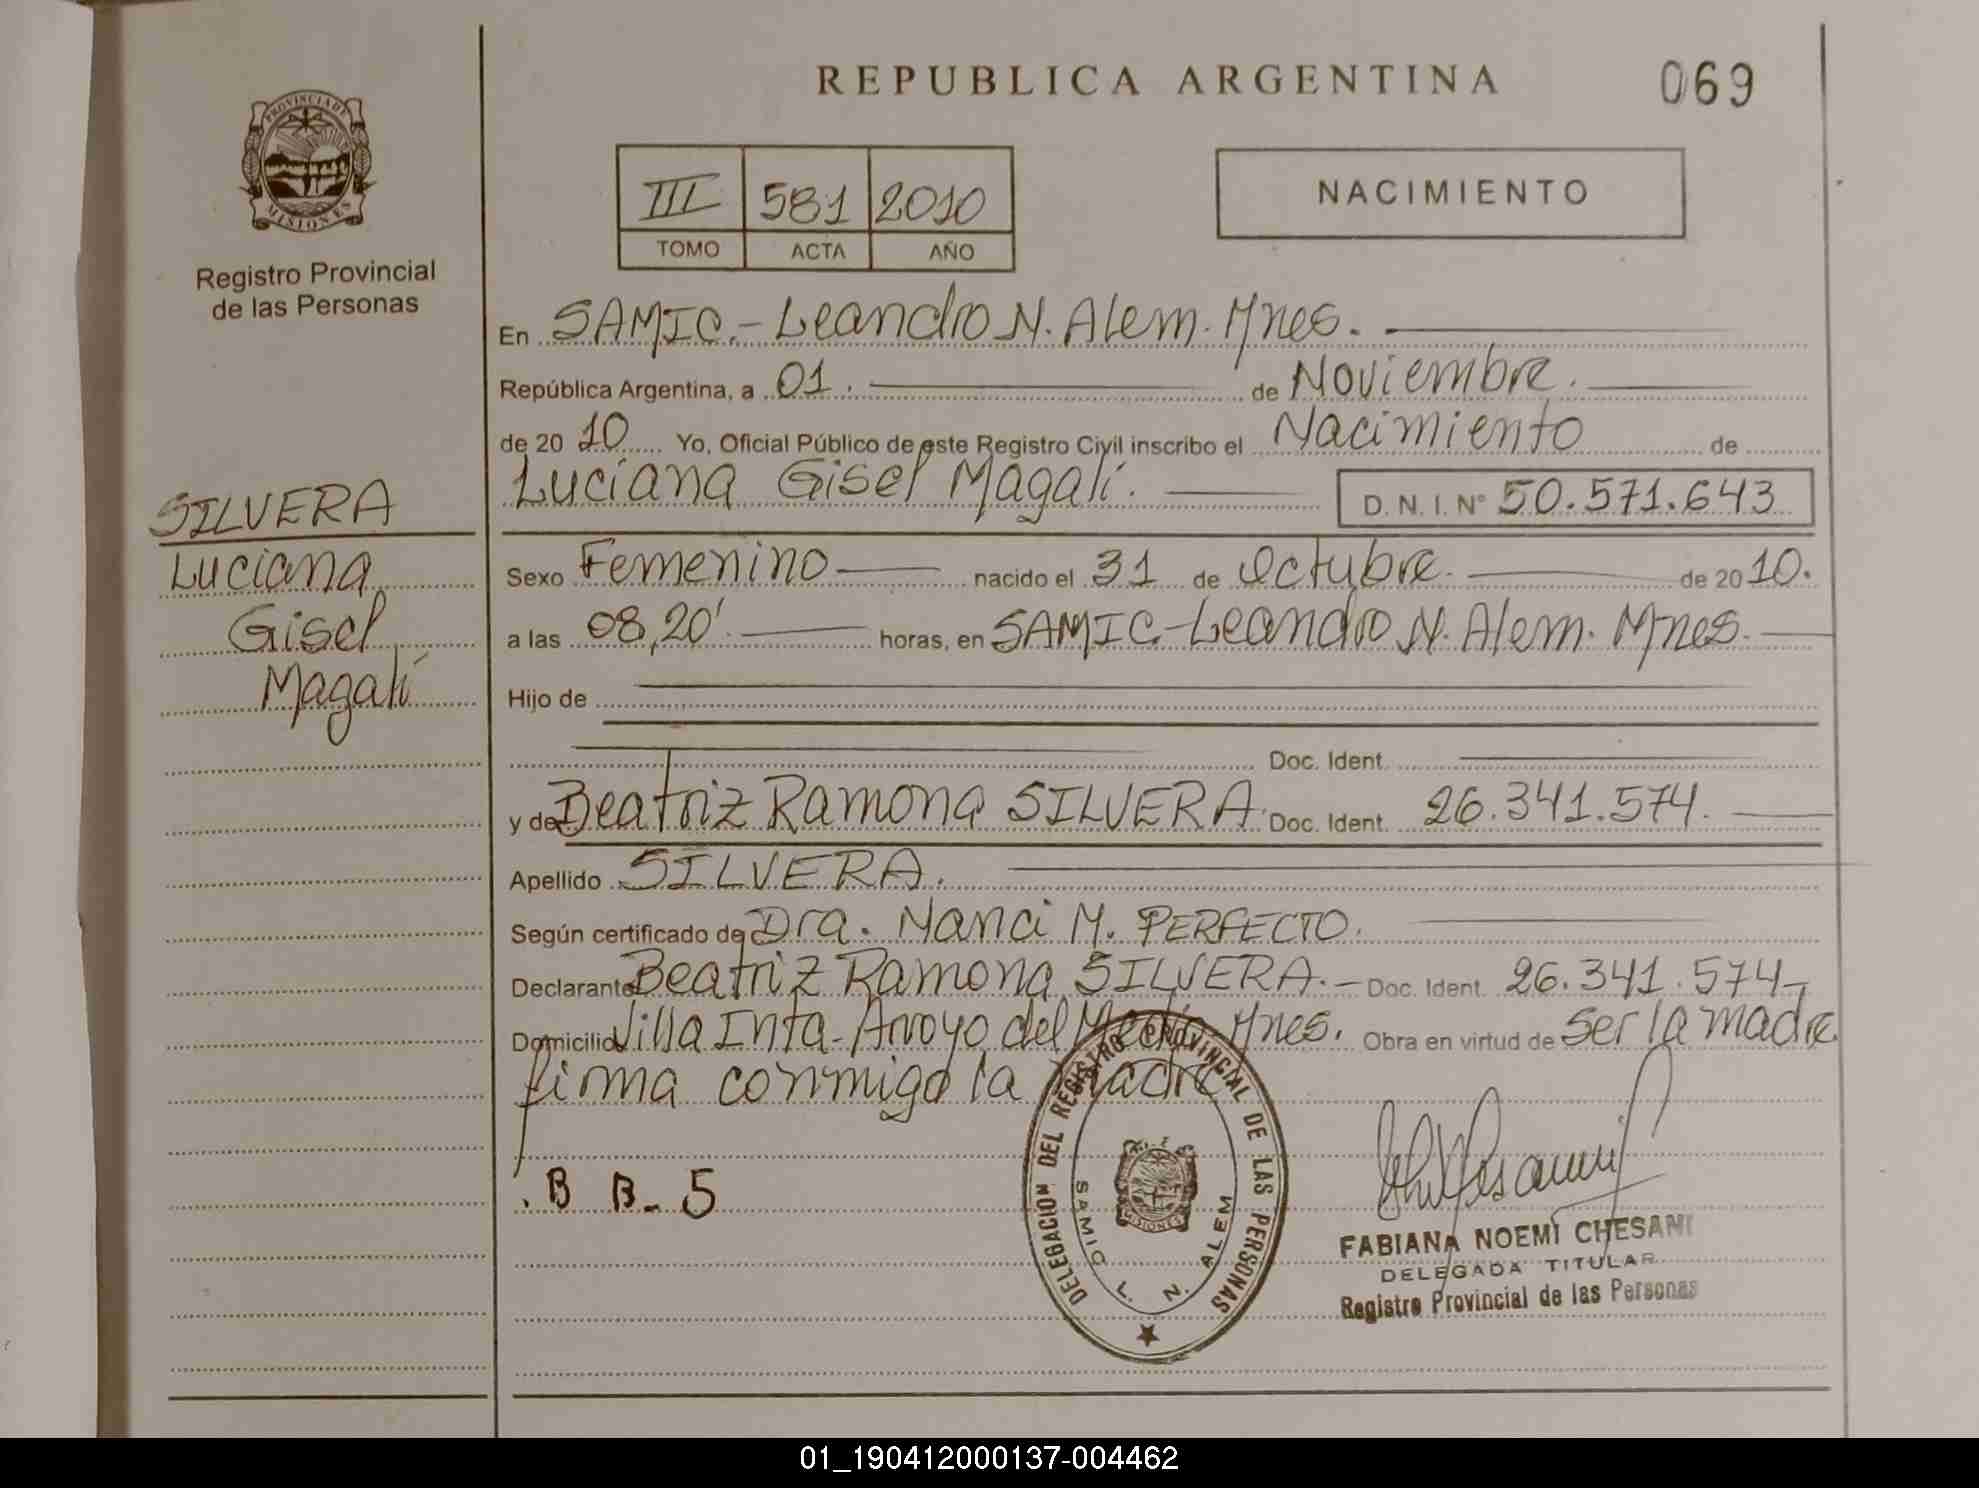 REPUBLICA ARGENTINA
069
PROVINCIA DE
MISIONES
Registro Provincial
de las Personas
III 581 2010
TOMO ACTA AÑO
NACIMIENTO
En SAMIC.- Leandro N. Alem. Mnes.
República Argentina, a 01. de Noviembre.
de 20 10 Yo, Oficial Público de este Registro Civil inscribo el Nacimiento de
Luciana Gisel Magalí. D. N. I. Nº 50.571.643
SILVERA
Luciana
Gisel
Magalí
Sexo Femenino nacido el 31 de Octubre. de 20 10.
a las 08,20'. horas, en SAMIC-Leandro N. Alem. Mnes.
Hijo de
Doc. Ident.
y de Beatriz Ramona SILVERA. Doc. Ident. 26.341.574.
Apellido SILVERA.
Según certificado de Dra. Nanci M. PERFECTO.
Declarante Beatriz Ramona SILVERA.- Doc. Ident. 26.341.574-
Domicilio Villa Inta-Arroyo del Medio Mnes. Obra en virtud de Ser la madre
firma conmigo la madre
. B B. 5
DELEGACION DEL REGISTRO PROVINCIAL DE LAS PERSONAS
MISIONES
SAMIC L. N. ALEM
FABIANA NOEMI CHESANI
DELEGADA TITULAR
Registro Provincial de las Personas
01_190412000137-004462